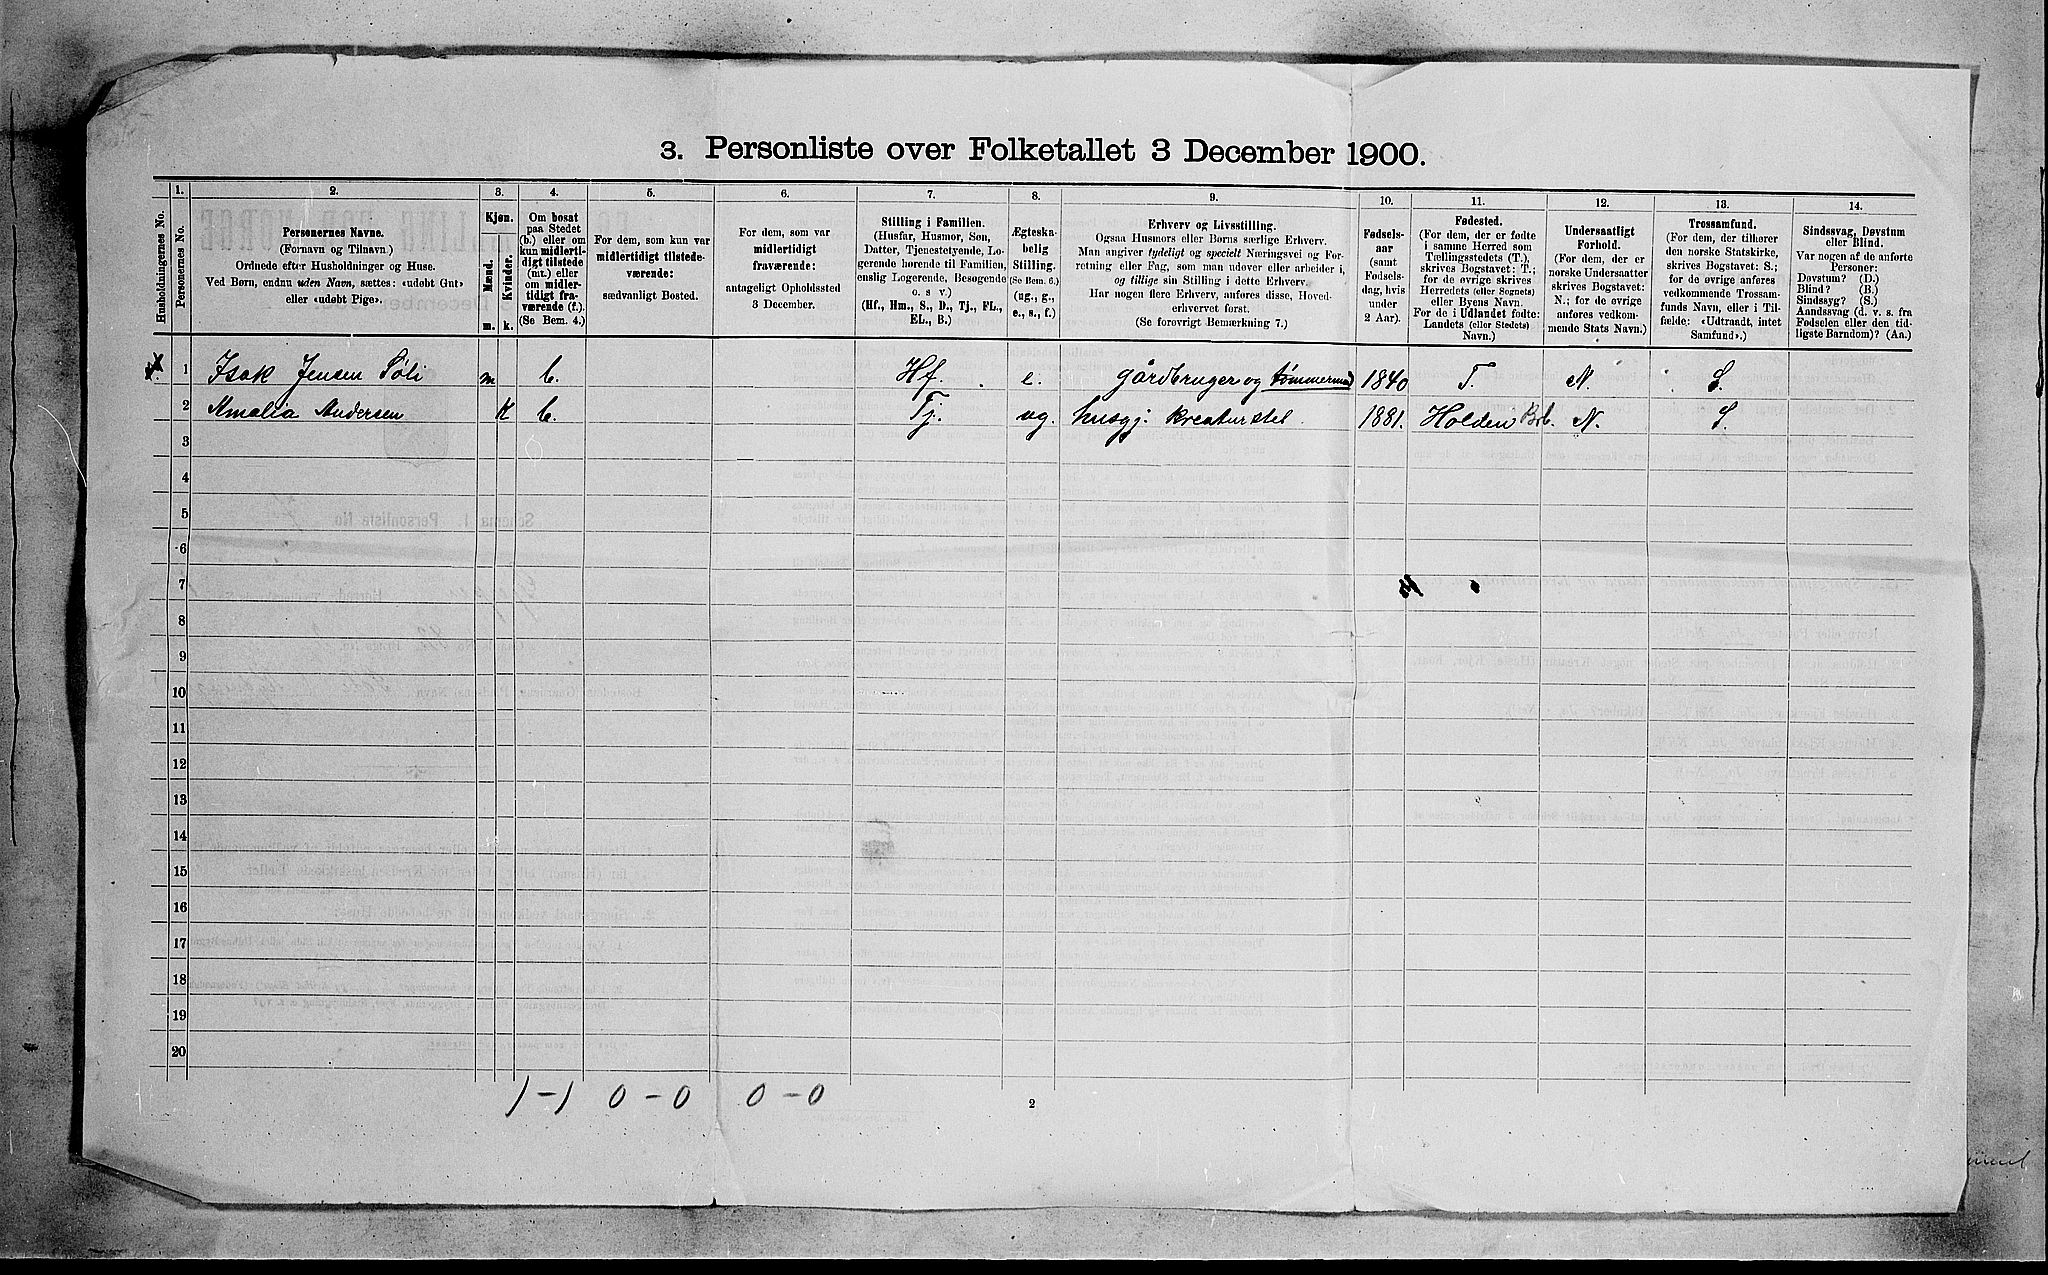 3. Personliste over Folketallet 3 December 1900.
Husholdningernes No.
1.
Personernes No.
2.
Personernes Navne.
(Fornavn og Tilnavn.)
Ordnede efter Husholdninger og Huse.
Ved Børn, endnu uden Navn, sættes: «udøbt Gut»
eller «udøbt Pige».
3.
Kjøn.
Mænd.
Kvinder.
m.
k.
4.
Om bosat
paa Stedet
(b.) eller om
kun midlerti-
digt tilstede
(mt.) eller
om midler-
tidigt fra-
værende (f.).
(Se Bem. 4.)
5.
For dem, som kun var
midlertidigt tilstede-
værende:
sædvanligt Bosted.
6.
For dem, som var
midlertidigt
fraværende:
antageligt Opholdssted
3 December.
7.
Stilling i Familien.
(Husfar, Husmor, Søn,
Datter, Tjenestetyende, Lo-
gerende hørende til Familien,
enslig Logerende, Besøgende
o. s v.)
(Hf., Hm., S., D., Tj., FL.,
EL., B.)
8.
Ægteska-
belig
Stilling.
(Se Bem. 6.)
(ug., g.,
e., s., f.)
9.
Erhverv og Livsstilling.
Ogsaa Husmors eller Børns særlige Erhverv.
Man angiver tydeligt og specielt Næringsvei og For-
retning eller Fag, som man udøver eller arbeider i,
og tillige sin Stilling i dette Erhverv.
Har nogen flere Erhverv, anføres disse, Hoved-
erhvervet først.
(Se forøvrigt Bemærkning 7.)
10.
Fødsels-
aar
(samt
Fødsels-
dag, hvis
under
2 Aar).
11.
Fødested.
(For dem, der er fødte
i samme Herred som
Tællingsstedets (T.),
skrives Bogstavet: T.;
for de øvrige skrives
Herredets (eller Sognets)
eller Byens Navn.
For de i Udlandet fødte:
Landets (eller Stedets)
Navn.)
12.
Undersaatligt
Forhold.
(For dem, der er
norske Undersaatter
skrives Bogstavet:
N.; for de øvrige
anføres vedkom-
mende Stats Navn.)
13.
Trossamfund.
(For dem, der tilhører
den norske Statskirke,
skrives Bogstavet: S.;
for de øvrige anføres
vedkommende Trossam-
funds Navn, eller i Til-
fælde: «Udtraadt, intet
Samfund».)
14.
Sindssvag, Døvstum
eller Blind.
Var nogen af de anførte
Personer:
Døvstum? (D.)
Blind? (B.)
Sindssyg? (S.)
Aandssvag (d. v. s. fra
Fødselen eller den tid-
ligste Barndom)? (Aa.)
1 Isak Jensen Søli m b. Hf. e. gårdbruger og tømmermd 1840 T. N. S.
2 Amalia Andersen K b. Tj. ug. husgj. kreaturstel 1881. Holden Brb. N. S.
3
4
5
6
7
8
9
10
11
12
13
14
15
16
17
18
19
20
1-1 0-0 0-0
2